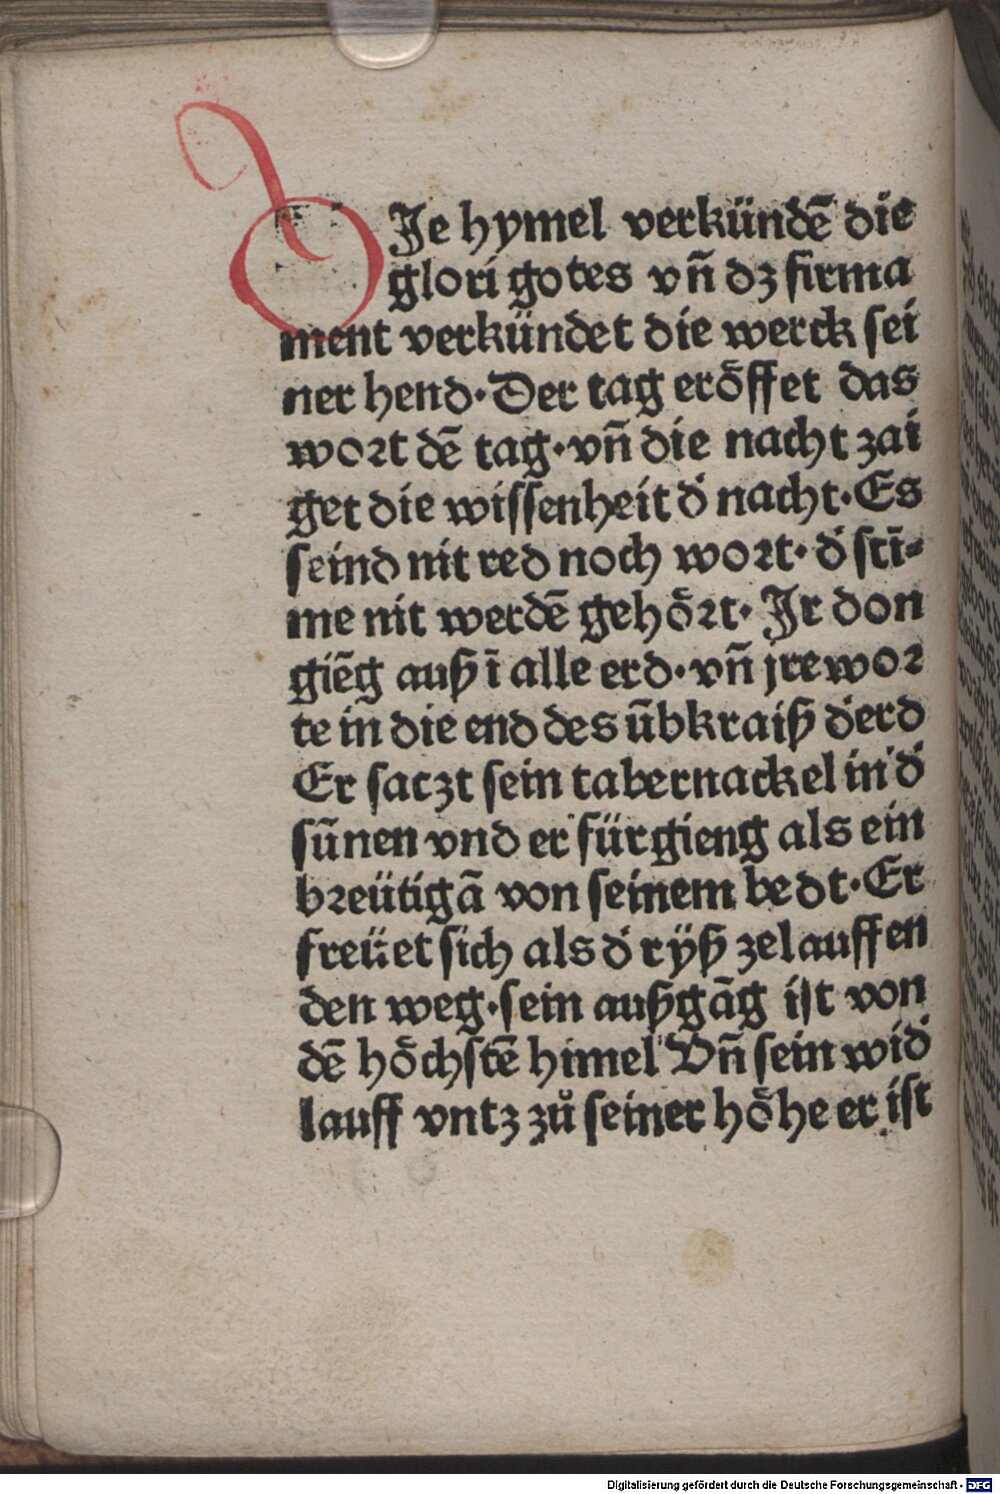 DJe hymel verkündē die
glori gotes vn̄ dʒ firma
ment verkündet die werck sei
ner hend·Der tag eröffet das
wort dē tag·vn̄ die nacht zai
get die wissenheit d̓ nacht·Es
seind nit red noch wort·d̓ stī⸗
me nit werdē gehört·Jr don
giēg auß ī alle erd·vn̄ jre wor
te in die end des ūbkraiß d̓ erd
Er saczt sein tabernackel in d̓
sūnen vnd er fürgieng als ein
breütigā von seinem bedt·Er
freüet sich als d̓ rÿß zelauffen
den weg·sein außgāg ist von
dē höchstē himel Vn̄ sein wid̓
lauff vntz zů seiner höhe er ist
Digitalisierung gefördert durch die Deutsche Forschungsgemeinschaft - DFG